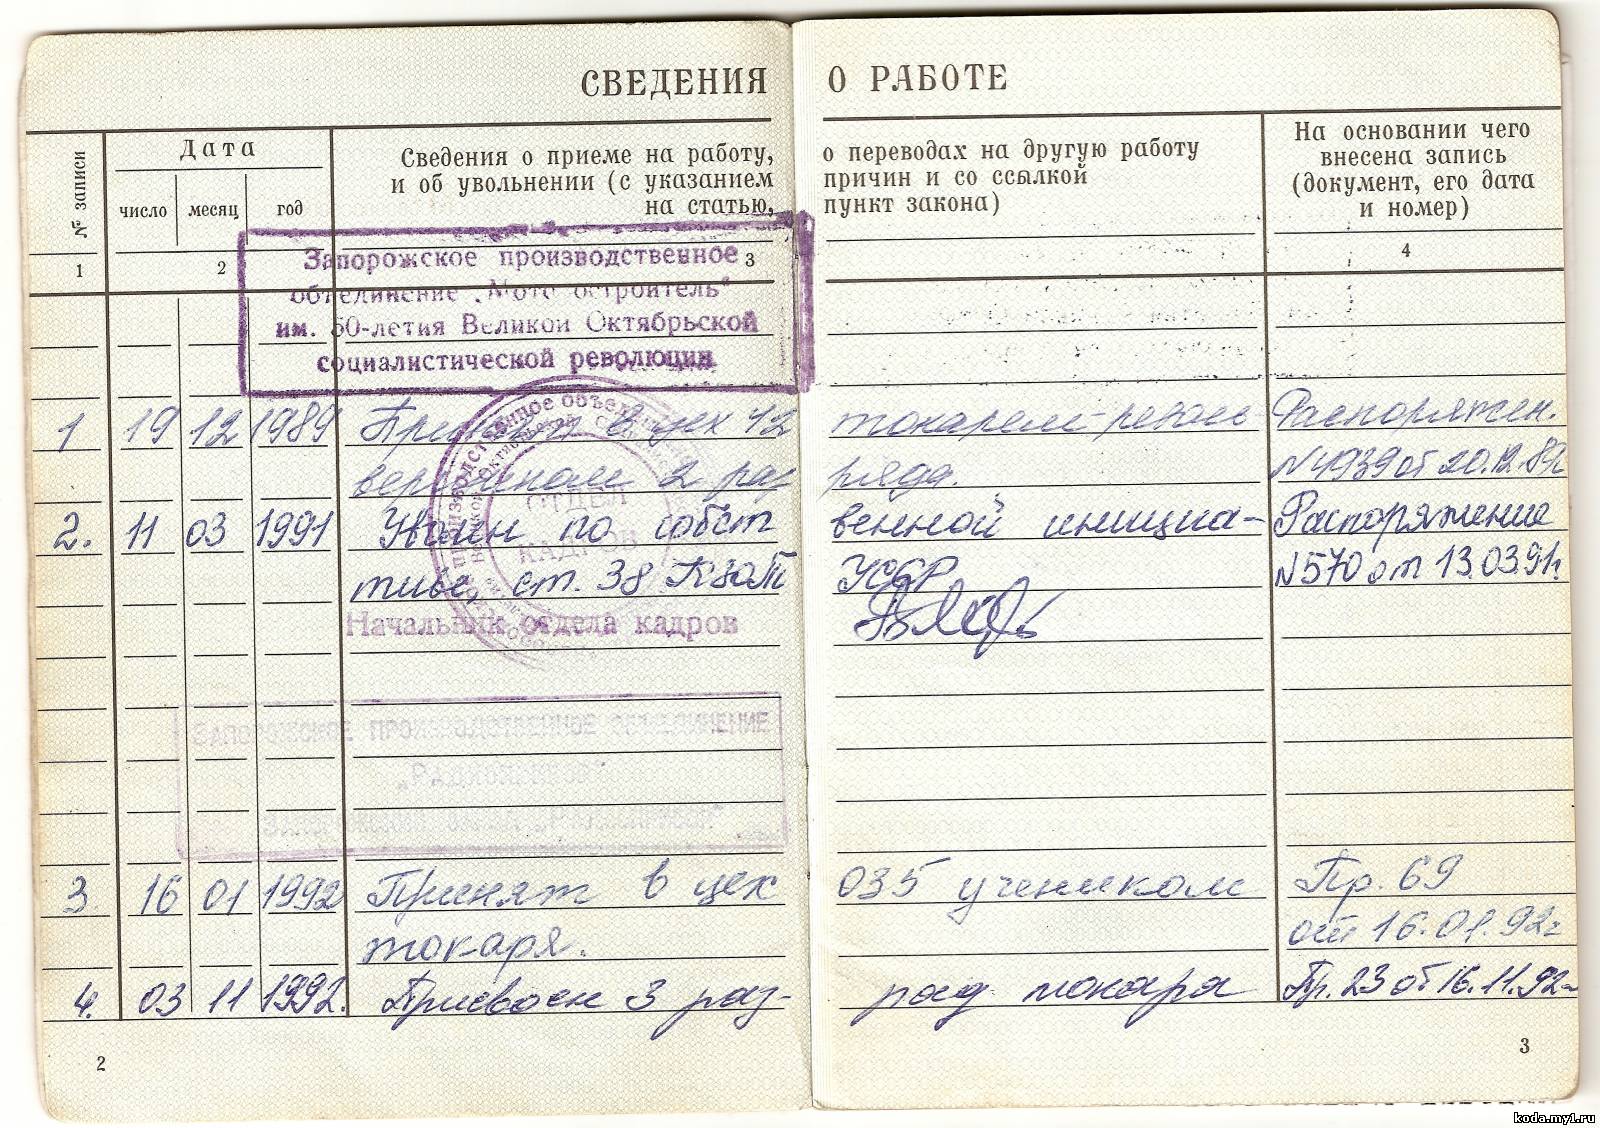 СВЕДЕНИЯ О РАБОТЕ
№ записи
Дата
число месяц год
Сведения о приеме на работу, о переводах на другую работу
и об увольнении (с указанием причин и со ссылкой
на статью, пункт закона)
На основании чего
внесена запись
(документ, его дата
и номер)
1 2 3 4
Запорожское производственное
объединение „Моторостроитель"
им. 60-летия Великой Октябрьской
социалистической революции
1 19 12 1989 Принят в цех 42 токарем-револь Распоряжен.
верщиком 2 раз ряда. N4939 от 20.12.89г
2. 11 03 1991 Уволен по собст венной инициа- Распоряжение
тиве, ст. 38 КЗоТ УССР N570 от 13.03.91г.
ОТДЕЛ
КАДРОВ
Начальник отдела кадров
ЗАПОРОЖСКОЕ ПРОИЗВОДСТВЕННОЕ ОБЪЕДИНЕНИЕ
3. 16 01 1992 Принят в цех 035 учеником Пр. 69
токаря. от 16.01.92г
4. 03 11 1992. Присвоен 3 раз- ряд токаря Пр. 23 от 16.11.92г
2
3
koda.my1.ru